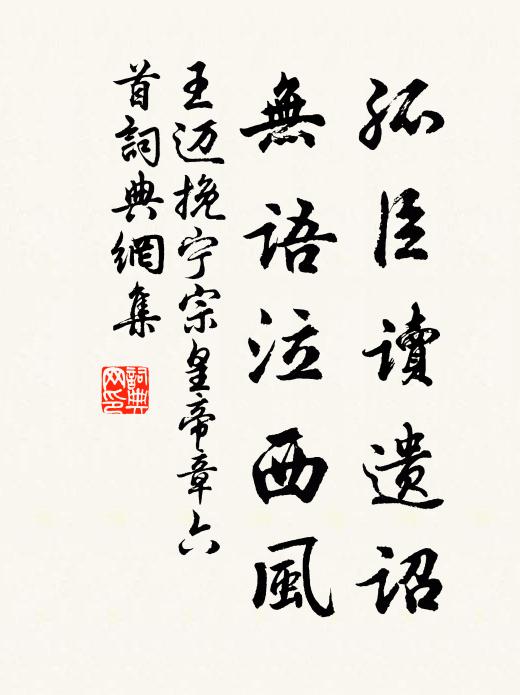 孤臣讀遺詔
無語泣西風
王迈挽宁宗皇帝章六
首詞典網集
詞典网印